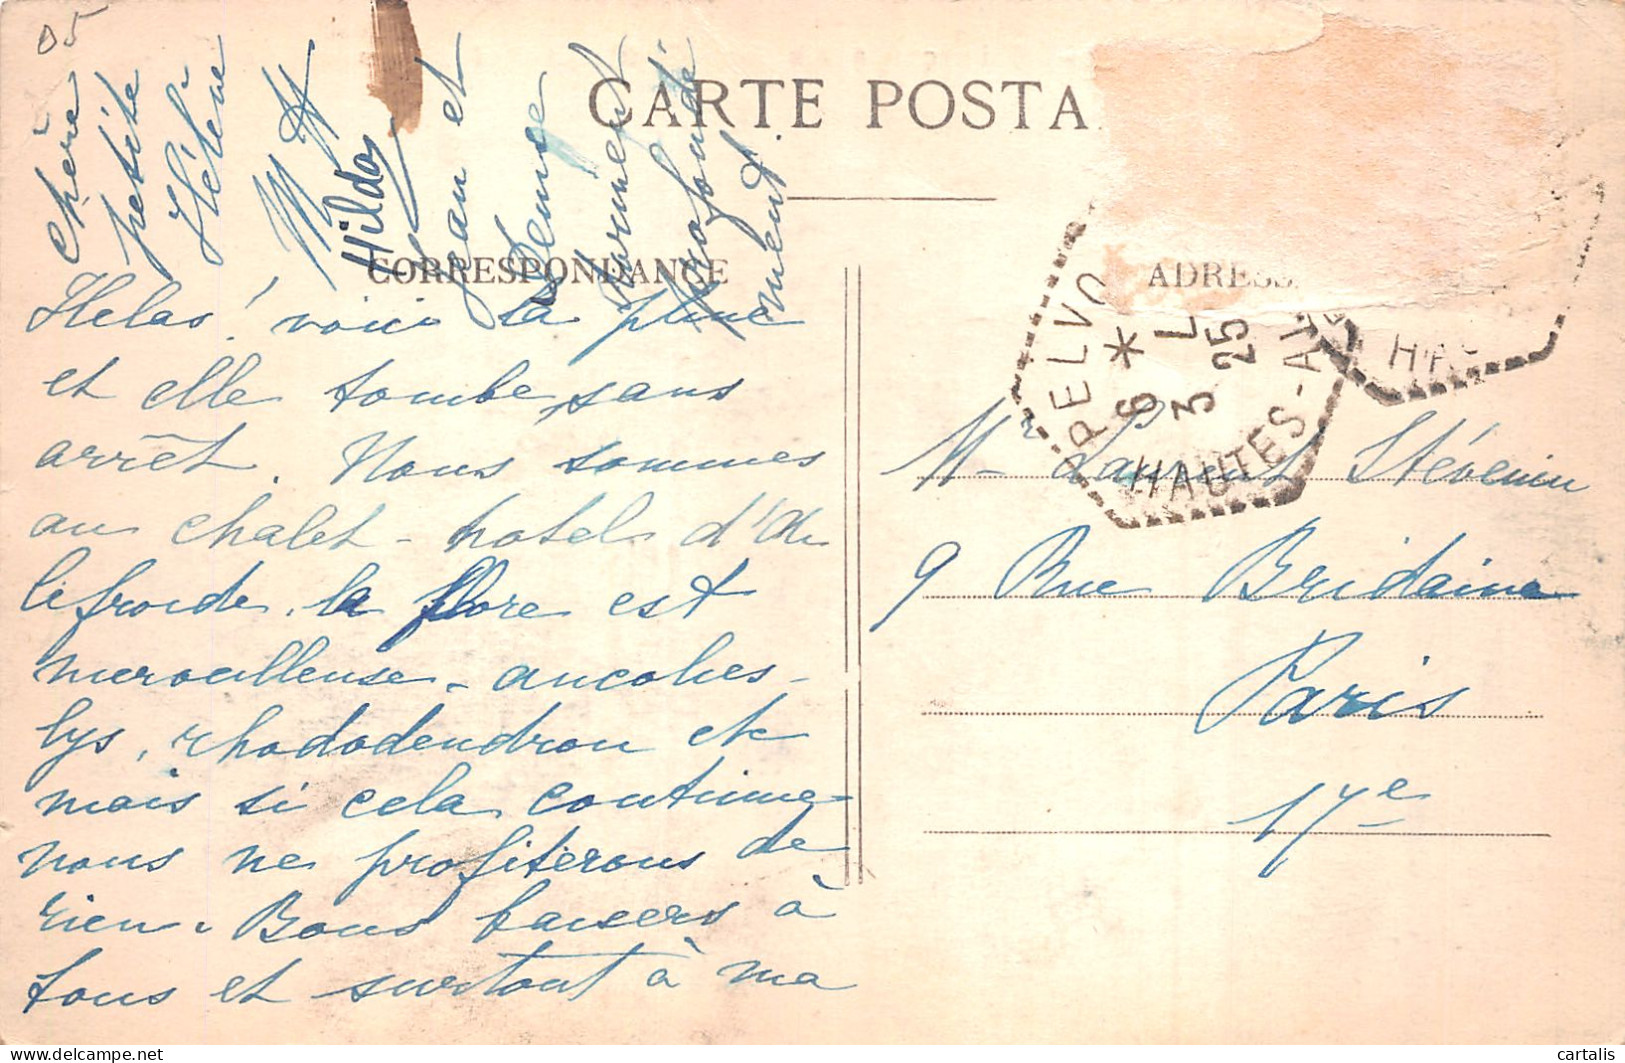 05
CARTE POSTA
CORRESPONDANCE
ADRESS
Helas! voici la pluie
et elle tombe sans
arrêt. Nous sommes
au chalet-hotel d'Ai
lefroide. la flore est
merveilleuse - ancolies -
lys, rhododendron etc
mais si cela continue -
nous ne profiterons de
rien. Bons baisers à
tous et surtout à ma
chère
petite
Hélène
Hilda
Jean et
Denise
dorment
profondé
ment.
PELVO
* 
6 L
3 25
HAUTES-AL
HA
Mr Laurent Stévenin
9 Rue Bridaine
Paris
17e
cartalis
delcampe.net